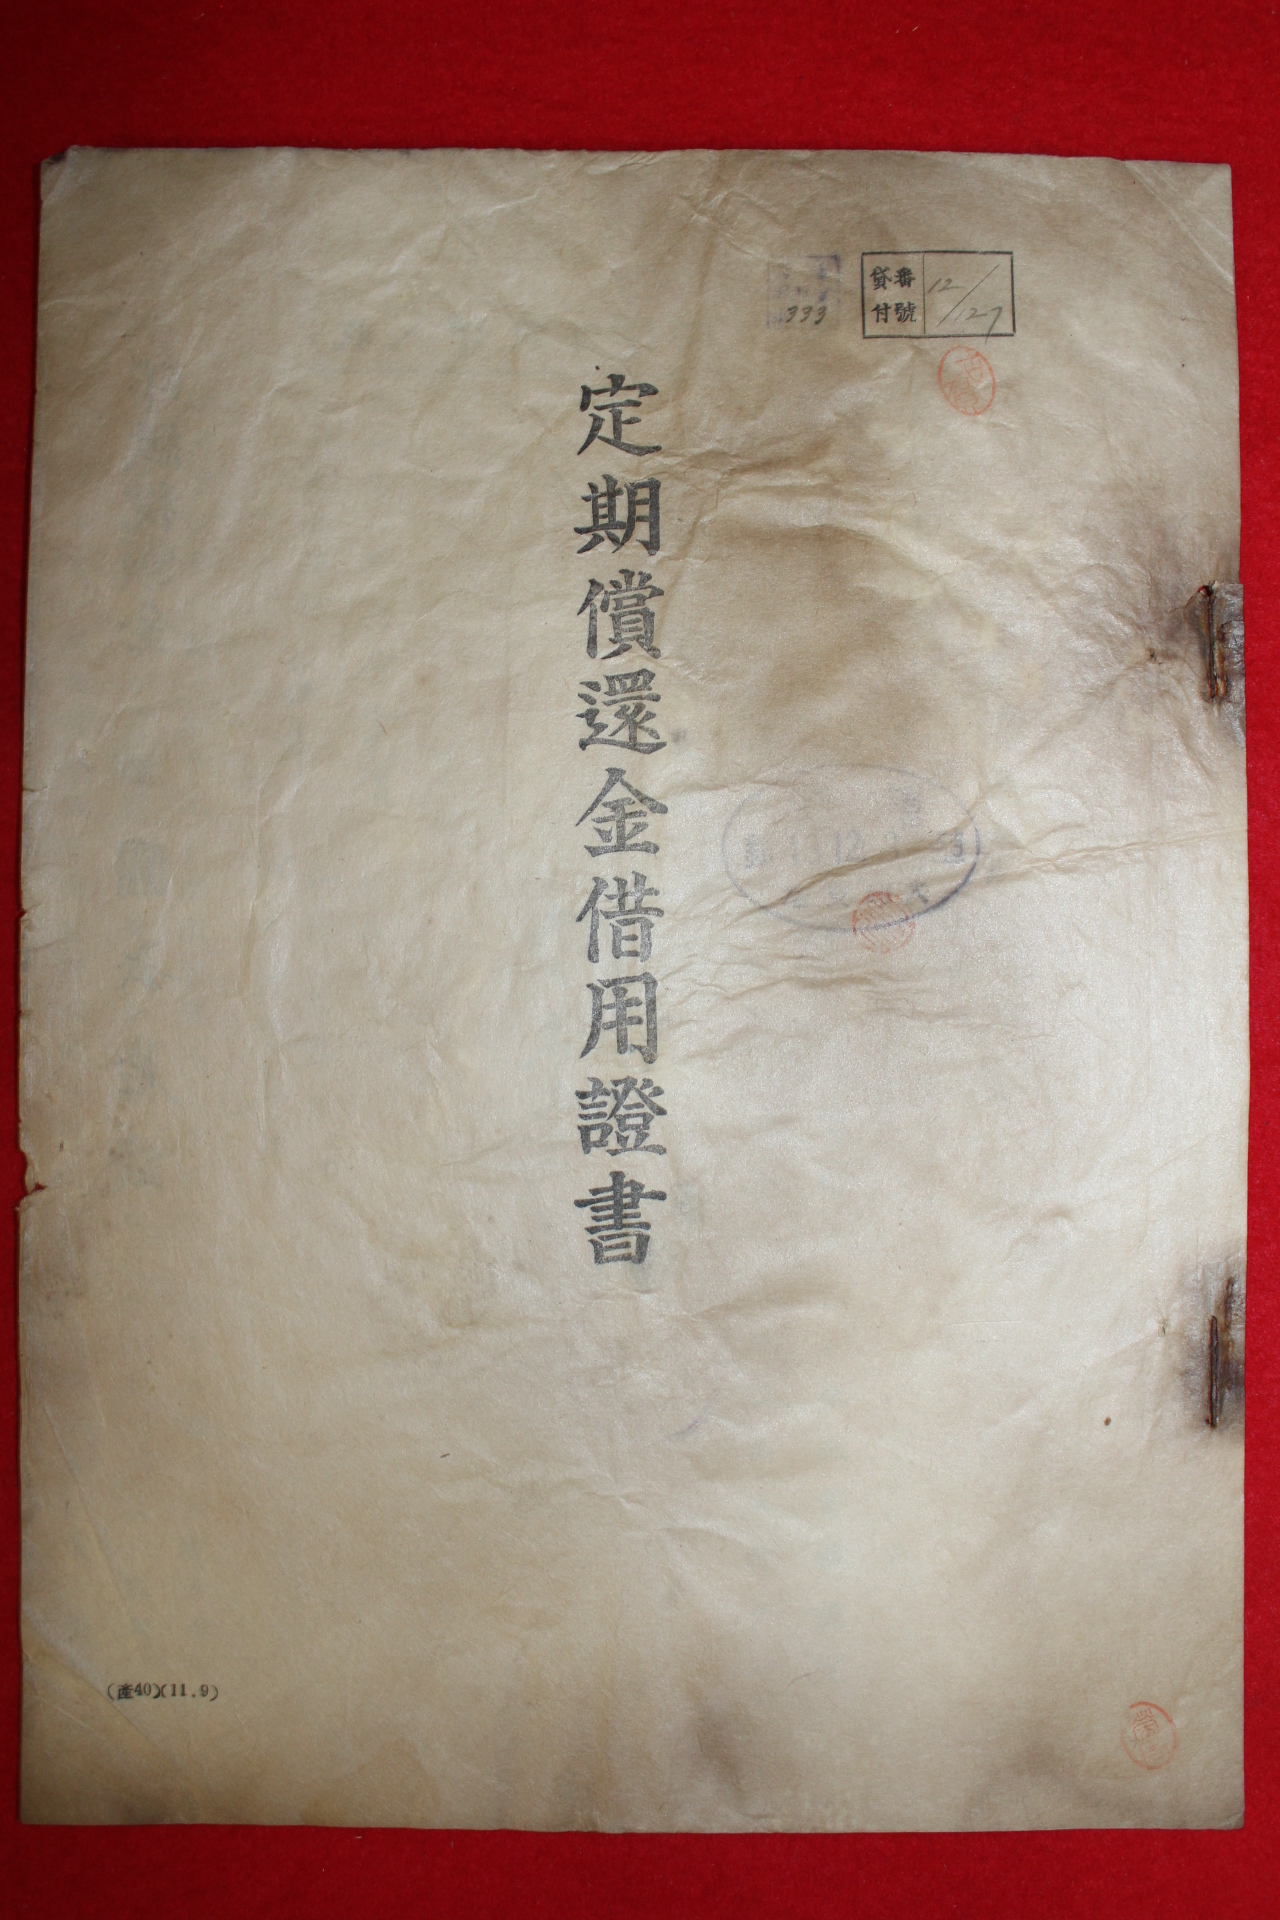 貸付
番號
12/127
333
定期償還金借用證書
12
(產40)(11.9)